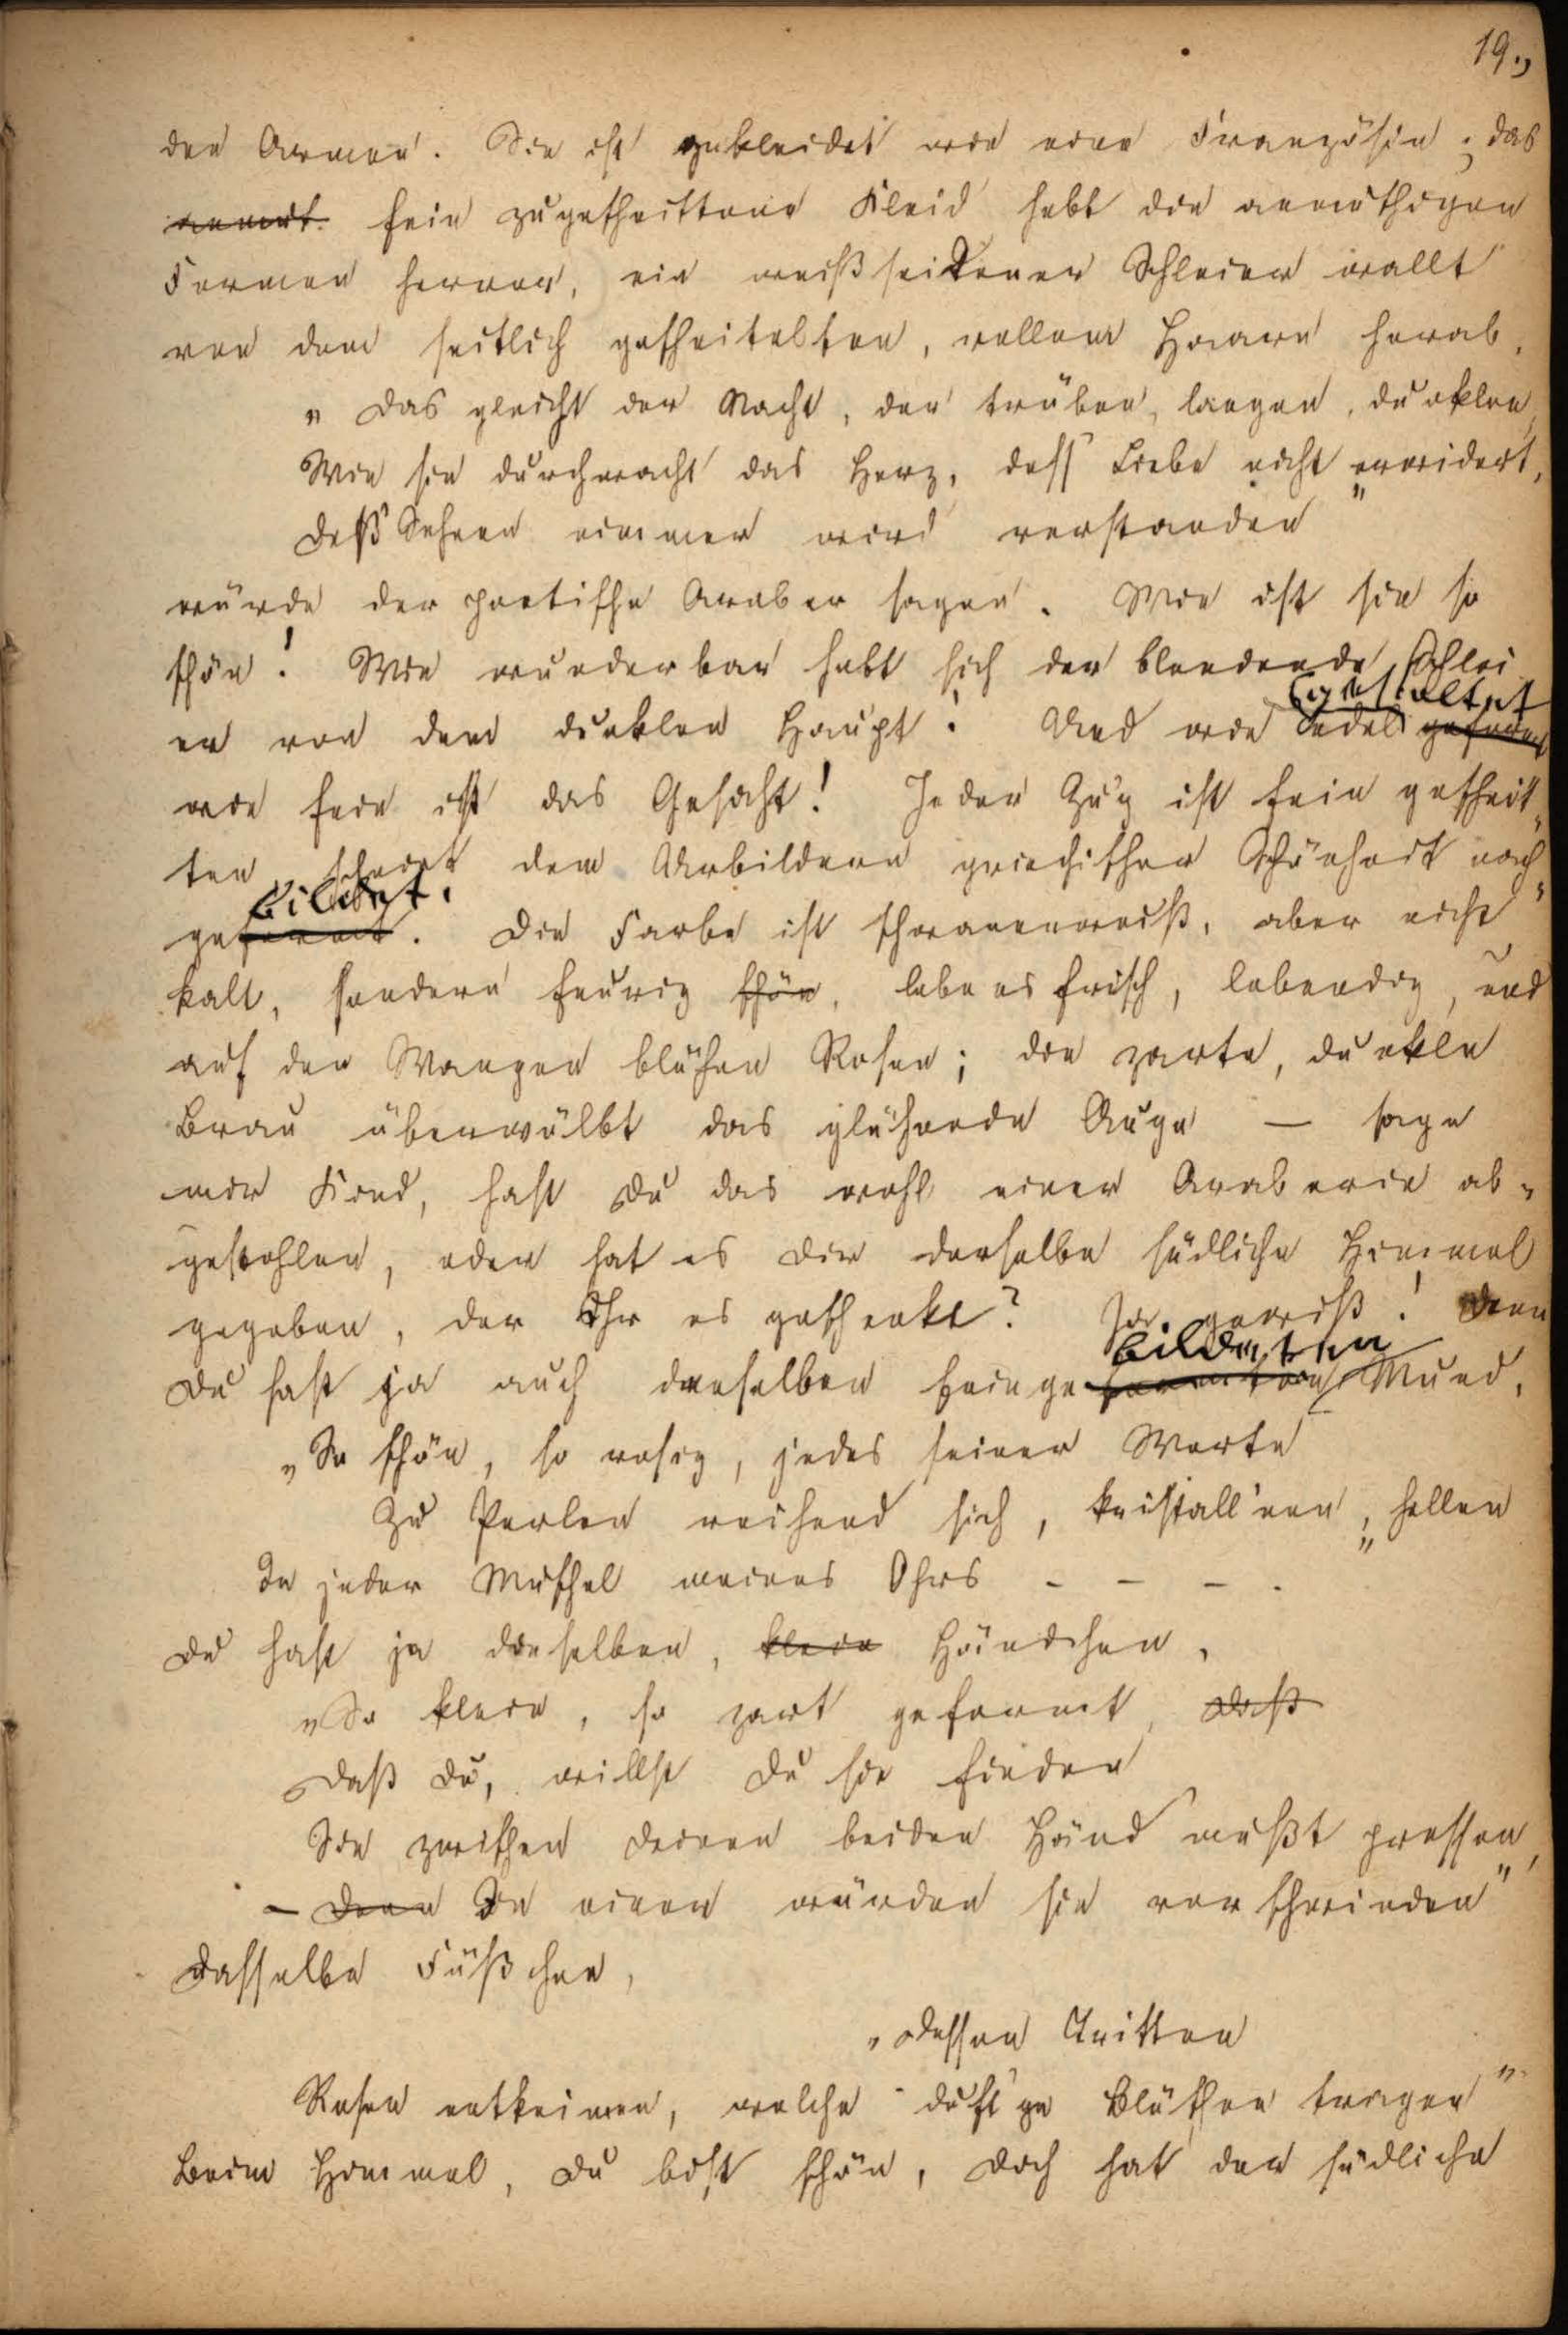 19.,
der Armen. Sie ist gekleidet wie eine Französin; das
fein zugeschnittene Kleid hebt die anmuthigen
Formen hervor, ein weißseidener Schleier wallt
von dem seitlich gescheitelten, vollem Haare herab.
„Das gleicht der Nacht, der trüben, langen, dunklen,
Wie sie durchwacht das Herz, dess Liebe nicht erwidert,
Deß Sehnen nimmer wird verstanden"
würde der poetische Araber sagen. Wie ist sie so
schön! Wie wunderbar hebt sich der blendende Schlei
er von dem dunklen Haupt! Und wie edel gestaltet
wie fein ist das Gesicht! Jeder Zug ist fein geschnit„
ten, scheint den Urbildern griechischer Schönheit nach„
gebildet. Die Farbe ist schwanenweiß, aber nicht
kalt, sondern feurig schön, lebensfrisch, lebendig, und
auf den Wangen blühen Rosen; die zarte, dunkle
Brau überwölbt das glühende Auge — sage
mir Kind, hast Du das wohl einer Araberin ab„
gestohlen, oder hat es Dir derselbe südliche Himmel
gegeben, der Ihr es geschenkt? Ja gewiß! Denn
Du hast ja auch denselben feinge bildeten Mund,
„So schön, so rosig, jedes seiner Worte
Zu Perlen reihend sich, kristall'nen, hellen"
In jeder Muschel meines Ohrs - - - .
Du hast ja dieselben, klein Händchen,
„So klein, so zart geformt, daß
Daß Du, willst Du sie finden
Sie zwischen deinen beiden Händ mußt pressen,
- Denn In einen würden sie verschwinden"
Dasselbe Füßchen,
„dessen Tritten
Rosen entkeimen, welche duft'ge Blüthen tragen"
Beim Himmel, Du bist schön, doch hat der südliche